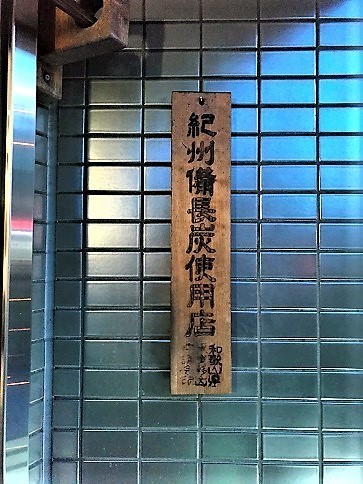 紀州備長炭使用店
和歌山県